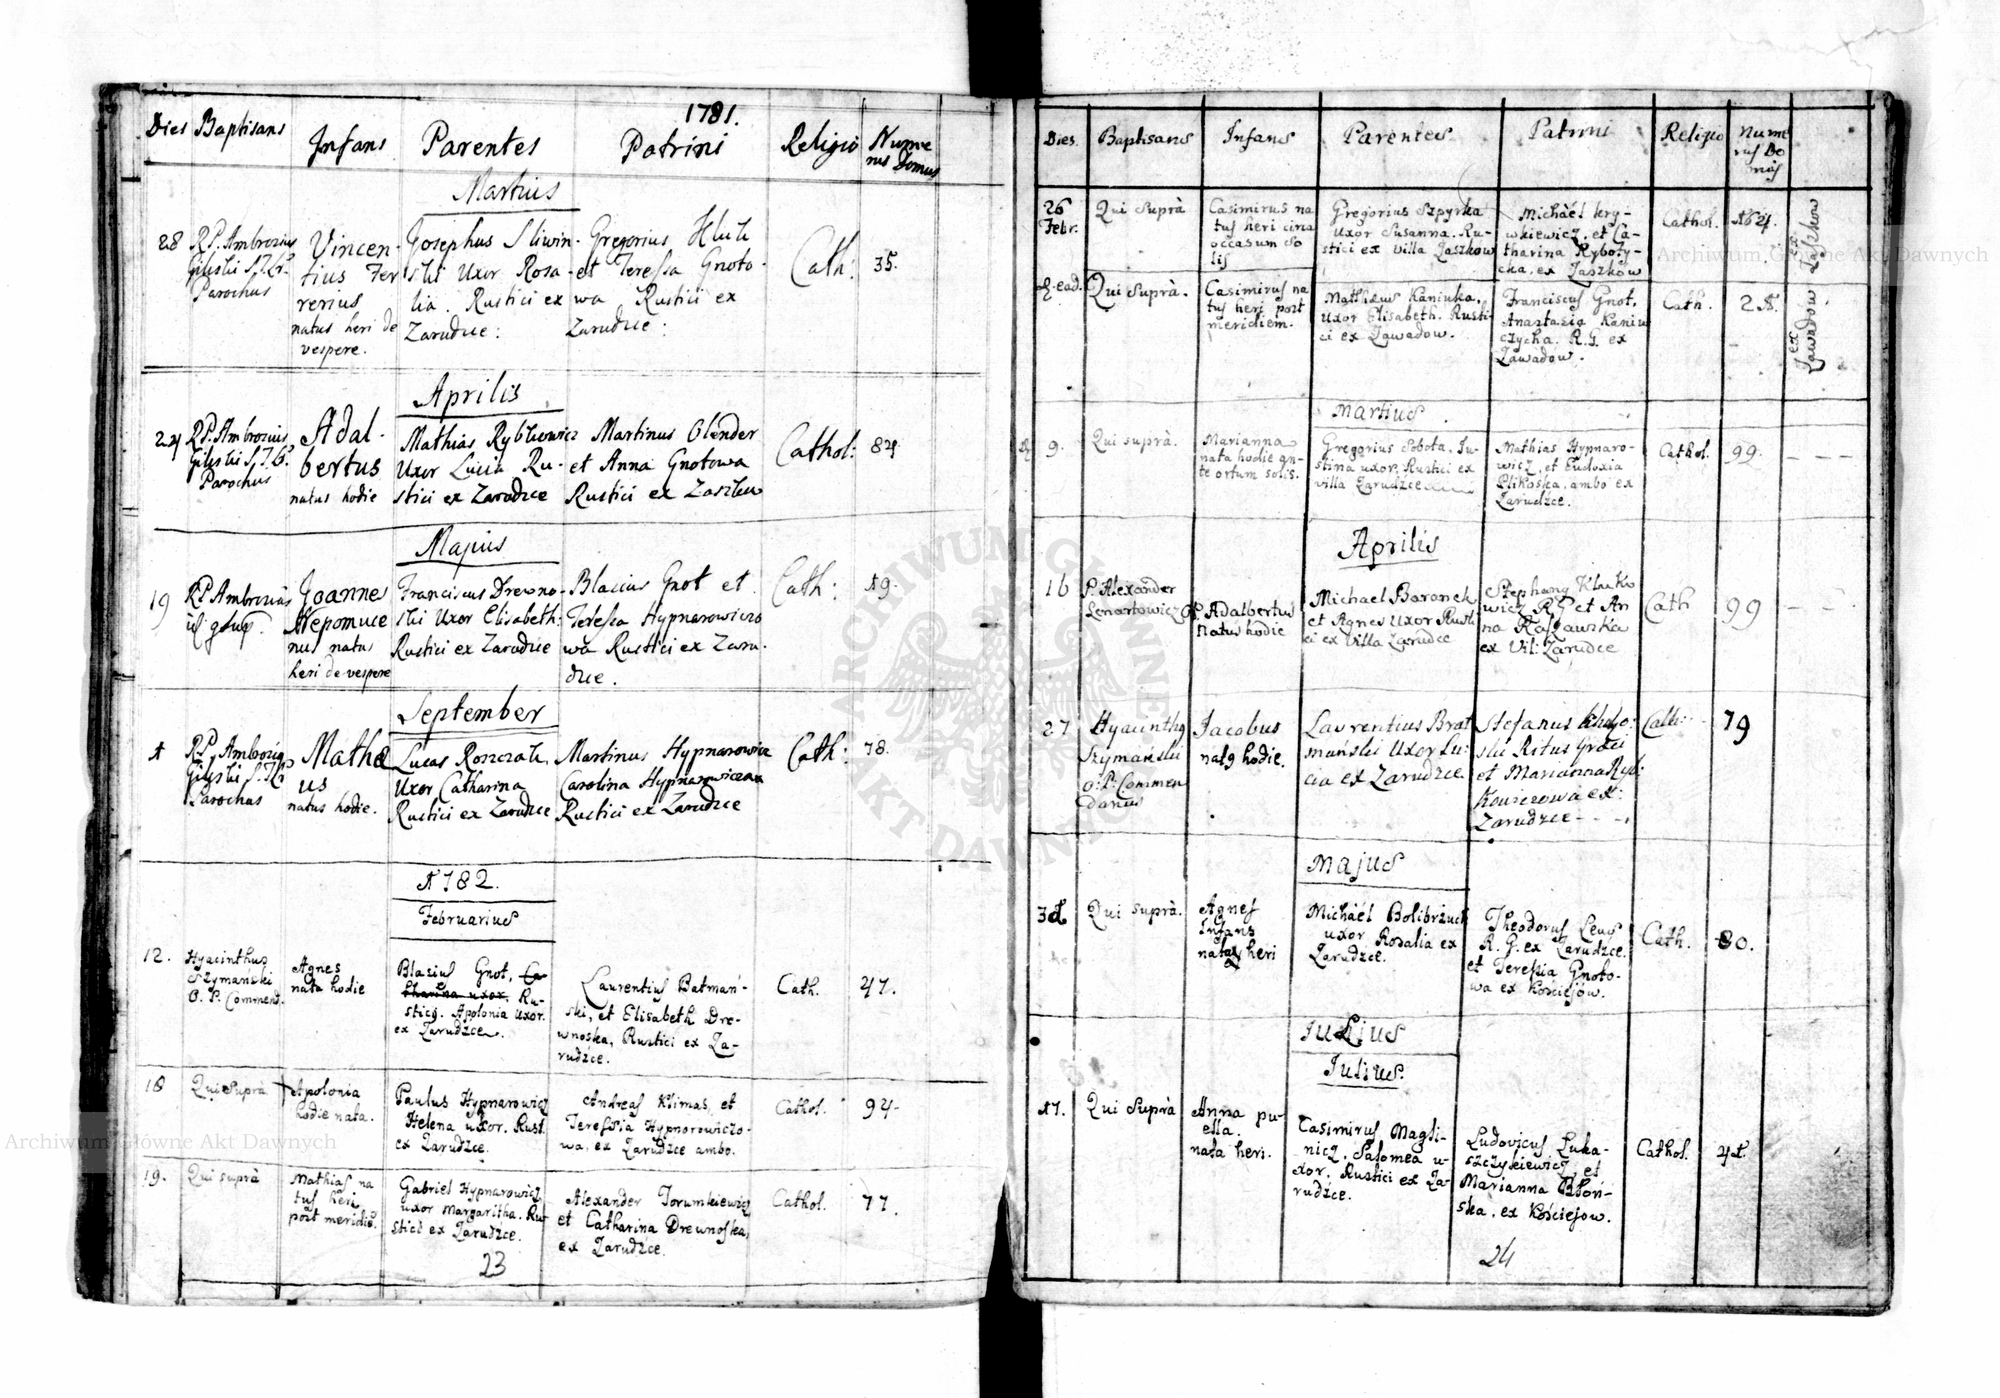 1781.
Dies Baptisans Infans Parentes Patrini Religio Nume
rus Domus
Martius
28 R.P. Ambrosius
Parochus
Vincen-
tius Fer
rerius
natus heri de
vespere.
Josephus Sliwin-
ski Uxor Rosa-
lia. Rustici ex
Zarudce:
Gregorius
et Teressa Gnoto-
wa Rustici ex
Zarudce:
Cath: 35.
Aprilis
24 R.P. Ambrosius
Parochus
Adal-
bertus
natus hodie
Mathias Rybkowicz
Uxor Lucia Ru-
stici ex Zarudce
Martinus Olender
et Anna Gnotowa
Rustici ex Zaszkow
Cathol: 84
Majus
19 R.P. Ambrosius
Joanne
Nepomuce
nus natus
heri de vespere
Franciscus Drewno-
ski Uxor Elisabeth:
Rustici ex Zarudce
Blasius Gnot et
Teressa Hypnarowiczo
wa Rustici ex Zaru-
dce.
Cath: 19.
September
1 R.P. Ambrosius
Parochus
Mathe
us
natus hodie.
Lucas
Uxor Catharina
Rustici ex Zarudce
Martinus Hypnarowicz
Carolina Hypnarowiczowa
Rustici ex Zarudce
Cath: 78.
1782.
Februarius
12. Hyacinthus
Szymański
O. P. Commend.
Agnes
nata hodie
Blasius Gnot, Ca-
tharina uxor. Ru-
stici. Apolonia uxor.
ex Zarudzce.
Laurentius Batmań-
ski, et Elisabeth Dre-
wnoska, Rustici ex Za-
rudzce.
Cath. 47.
18 Qui Suprà
Apolonia
hodie nata.
Paulus Hypnarowicz
Helena uxor. Rust.
ex Zarudzce.
Andreas Klimas, et
Teressia Hypnorowiczo-
wa, ex Zarudzce ambo.
Cathol. 94
19. Qui suprà
Mathias na
tus heri
post meridie.
Gabriel Hypnarowicz
uxor Margaritha. Ru-
stici ex Zarudzce.
Alexander Torumkiewicz
et Catharina Drewnoska,
ex Zarudzce.
Cathol. 77.
23
Dies. Baptisans Infans Parentes Patrini Religio Nume
rus Do
mus
26
Febr.
Qui Suprà
Casimirus na
tus heri circa
occasum so
lis
Gregorius Szpyrka
Uxor Susanna. Ru-
stici ex Villa Zaszkow
Michäel Kry-
wkiewicz, et Ca-
tharina Ryboty-
cka, ex Zaszków
Cathol.
ex
Zaszkow
ead. Qui Suprà.
Casimirus na
tus heri post
meridiem.
Matthæus Kaniuka,
Uxor Elisabeth. Rusti-
ci ex Zawadow.
Franciscus Gnot,
Anastazia Kaniu
czycha. R.G. ex
Zawadow.
Cath. 21.
ex
Zawadow.
Martius.
9. Qui suprà.
Marianna
nata hodie an-
te ortum solis.
Gregorius Sobota. Ju-
stina uxor. Rustici ex
villa Zarudzce
Mathias Hypnaro-
wicz, et Eudoxia
Plikoska, ambo ex
Zarudzce.
Cathol. 99.
Aprilis
16 P. Alexander
Lenartowicz O.P.
Adalbertus
Natus hodie
Michael Baronek
et Agnes Uxor Rusti
ci ex Villa Zarudce
Stephany Kluko
wicz R G et An
na Raszawska
ex Vil: Zarudce
Cath 99
27 Hyacinthg
Szymański
O: P: Commen
danus
Jacobus
nat9 hodie.
Laurentius Brat
mański Uxor Lu:
cia ex Zarudzce
Stefanus
Ritus Graeci
et Marianna Ryb:
kowiczowa ex:
Zarudzce
Cath: 79
Majus
Qui suprà.
Agnes
Infans
nata heri
Michäel Bolibrzuch
uxor Rosalia ex
Zarudzce.
Theodorus Lewus
R. G. ex Zarudzce.
et Teressia Gnoto-
wa ex Kościejow.
Cath. 80.
Julius
Julius.
17. Qui Suprà
Anna pu-
ella.
nata heri.
Casimirus Magli-
nicz, Salomea u-
xor, Rustici ex Za-
rudzce.
Ludovicus Luka-
szczykiewicz, et
Marianna Błoń-
ska, ex Kościejow.
Cathol. 41.
24
ARCHIWUM GŁÓWNE AKT DAWNYCH
Archiwum Główne Akt Dawnych
Archiwum Główne Akt Dawnych